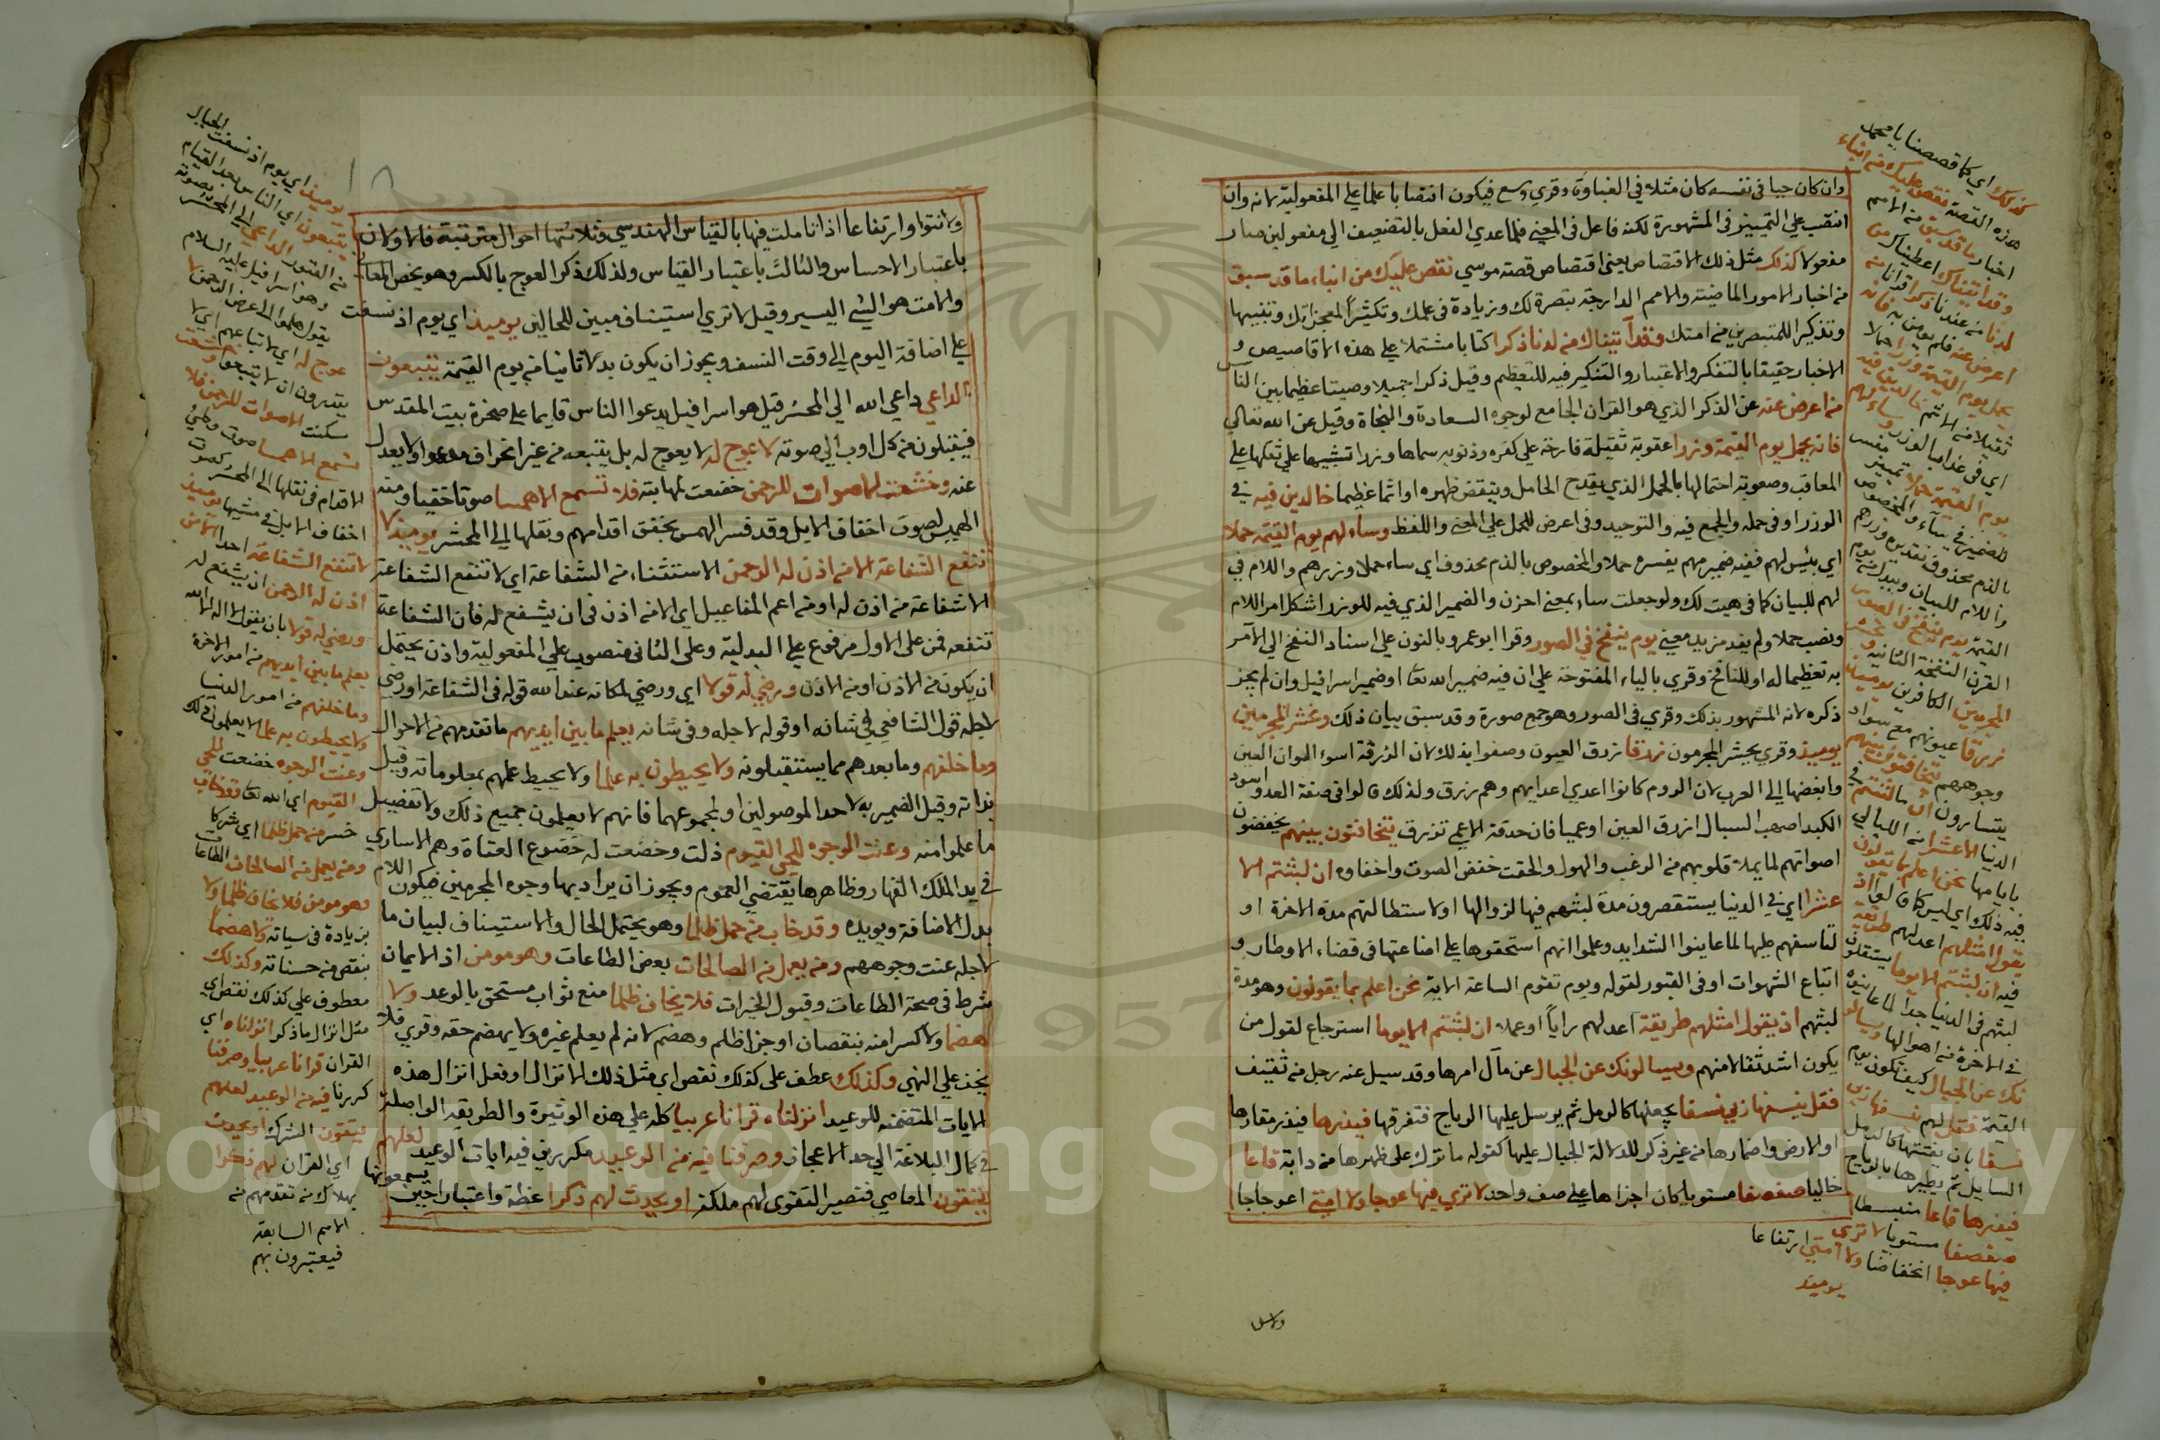 وان كان حيا في نفسه كان مثلا في الغباوة وقري وسع فيكون انتصابا علما علي المفعولية لانه وان
انتصب علي التمييز في المشهورة لكنه فاعل في المعني فلما عدي الفعل بالتضعيف الي مفعولين صار
مفعولا كذلك مثل ذلك الاقتصاص يعني اقتصاص قصة موسي نقص عليك من انباء ما قد سبق
من اخبار الامور الماضية والامم الدارجة تبصرة لك وزيادة في علمك وتكثيرا لمعجزاتك وتنبيها
وتذكيرا للمتبصرين من امتك وقد آتيناك من لدنا ذكرا كتابا مشتملا علي هذه الاقاصيص و
الاخبار حقيقا بالتفكر والاعتبار والتنكير فيه للتعظيم وقيل ذكرا جميلا وصيتا عظيما بين الناس
من اعرض عنه عن الذكر الذي هو القران الجامع لوجوه السعادة والنجاة وقيل عن الله تعالي
فانه يحمل يوم القيمة وزرا عقوبة ثقيلة فادحة علي كفره وذنوبه سماها وزرا تشبيها علي ثقلها علي
المعاقب وصعوبة احتمالها بالحمل الذي يفدح الحامل وينقض ظهره او اثما عظيما خالدين فيه في
الوزر او في حمله والجمع فيه والتوحيد في اعرض للحمل علي المعني واللفظ وساء لهم يوم القيمة حملا
اي بئس لهم ففيه ضمير مبهم يفسره حملا والمخصوص بالذم محذوف اي ساء حملا وزرهم واللام في
لهم للبيان كما في هيت لك ولو جعلت ساء بمعني احزن والضمير الذي فيه للوزر اشكل امر اللام
ونصب حملا ولم يفد مزيد معني يوم ينفخ في الصور وقرا ابو عمرو بالنون علي اسناد النفخ الي الآمر
به تعظيما له او للنافخ وقري بالياء المفتوحة علي ان فيه ضمير الله تعا او ضمير اسرافيل وان لم يجز
ذكره لانه المشهور بذلك وقري في الصور وهو جمع صورة وقد سبق بيان ذلك ونحشر المجرمين
يوميذ وقري يحشر المجرمون زرقا زرق العيون وصفوا بذلك لان الزرقة اسوء الوان العين
وابغضها الي العرب لان الروم كانوا اعدي اعدايهم وهم زرق ولذلك قالوا في صفة العدو اسود
الكبد اصهب السبال ازرق العين او عميا فان حدقة الاعمي تزرق يتخافتون بينهم يخفضون
اصواتهم لما يملا قلوبهم من الرعب والهول والخفت خفض الصوت واخفاوه ان لبثتم الا
عشرا اي في الدنيا يستقصرون مدة لبثهم فيها لزوالها او لاستطالتهم مدة الاخرة او
لتاسفهم عليها لما عاينوا الشدايد وعلموا انهم استحقوها علي اضاعتها في قضاء الاوطار و
اتباع الشهوات او في القبور لقوله ويوم تقوم الساعة الاية نحن اعلم بما يقولون وهو مدة
لبثهم اذ يقول امثلهم طريقة اعدلهم رايا او عملا ان لبثتم الا يوما استرجاع لقول من
يكون اشد تقالا منهم ويسالونك عن الجبال عن مآل امرها وقد سيل عنه رجل من ثقيف
فقل ينسفها ربي نسفا يجعلها كالرمل ثم يرسل عليها الرياح فتفرقها فيذرها فيذر مقارها
او الارض واضمارها من غير ذكر للدلالة الجبال عليها كقوله ما ترك علي ظهرها من دابة قاعا
خاليا صفصفا مستويا كان اجزاها علي صف واحد لا تري فيها عوجا ولا امتي اعوجاجا
كذلك اي كما قصصنا يا محمد
هذه القصة نقص عليك من انباء
اخبار ما قد سبق من الامم
وقد آتيناك اعطيناك من
لدنا من عندنا ذكرا قرانا من
اعرض عنه فلم يومن به فانه
يحمل يوم القيمة وزرا حملا
ثقيلا من الاثم خالدين فيه
اي في عذاب الوزر وساء لهم
يوم القيمة حملا تمييز مفسر
للضمير في ساء والمخصوص
بالذم محذوف تقديره وزرهم
واللام للبيان ويبدل من يوم
القيمة يوم ينفخ في الصور
القرن النفخة الثانية ونحشر
المجرمين الكافرين يوميذ
زرقا عيونهم مع سواد
وجوههم يتخافتون بينهم
يتسارون ان ما لبثتم في
الدنيا الا عشرا من الليالي
بايامها نحن اعلم بما يقولون
فيه ذلك اي ليس كما قالوا اذ
يقول امثلهم اعدلهم طريقة
فيه ان لبثتم الا يوما يستقلون
لبثهم في الدنيا جدا لما عاينوه
في الاخرة من اهوالها ويسالو
نك عن الجبال كيف تكون يوم
القيمة فقل لهم ينسفها ربي
نسفا بان يفتتها كالرمل
السايل ثم يطيرها بالرياح
فيذرها قاعا منبسطا
صفصفا مستويا لا تري
فيها عوجا انخفاضا ولا امتي ارتفاعا
يوميذ
ولا نتوا
ولا نتوا وارتفاعا اذا تاملت فيها بالقياس الهندسي وثلاثتها احوال مترتبة فالاولان
باعتبار الاحساس والثالث باعتبار القياس ولذلك ذكر العوج بالكسر وهو يخص المعاني
والامت هو النتؤ اليسير وقيل لا تري استيناف مبين للحالين يوميذ اي يوم اذ نسفت
علي اضافة اليوم الي وقت النسف ويجوز ان يكون بدلا ثانيا من يوم القيمة يتبعون
الداعي داعي الله الي المحشر قيل هو اسرافيل يدعوا الناس قايما علي صخرة بيت المقدس
فيقبلون من كل اوب الي صوته لا عوج له لا يعوج له بل يتبعه من غير انحراف مدعو او لا يعدل
عنه وخشعت الاصوات للرحمن خفضت لمهابته فلا تسمع الا همسا صوتا خفيا ومنه
الهميس لصوت اخفاف الابل وقد فسر الهمس بخفق اقدامهم ونقلها الي المحشر يوميذ لا
تنفع الشفاعة الا من اذن له الرحمن الاستثناء من الشفاعة اي لا تنفع الشفاعة
الا شفاعة من اذن له او من اعم المفاعيل اي الا من اذن في ان يشفع له فان الشفاعة
تنفعه فمن علي الاول مرفوع علي البدلية وعلي الثاني منصوب علي المفعولية واذن يحتمل
ان يكون من الاذن او من الاذن ورضي له قولا اي ورضي لمكانه عند الله قوله في الشفاعة او رضي
لاجله قول الشافعي في شانه او قوله لاجله وفي شانه يعلم ما بين ايديهم ما تقدمهم من الاحوال
وما خلفهم وما بعدهم مما يستقبلونه ولا يحيطون به علما ولا يحيط علمهم بمعلوماته وقيل
بذاته وقيل الضمير به لاحد الموصولين او لمجموعهما فانهم لا يعلمون جميع ذلك ولا تفصيل
ما علموا منه وعنت الوجوه للحي القيوم ذلت وخضعت له خضوع العناة وهم الاساري
في يد الملك القهار وظاهرها يقتضي العموم ويجوز ان يراد بها وجوه المجرمين فيكون اللام
بدل الاضافة ويويده وقد خاب من حمل ظلما وهو يحتمل الحال والاستيناف لبيان ما
لاجله عنت وجوههم ومن يعمل من الصالحات بعض الطاعات وهو مومن اذ الايمان
شرط في صحة الطاعات وقبول الخيرات فلا يخاف ظلما منع ثواب مستحق بالوعد ولا
هضما ولا كسرا منه بنقصان او جزا ظلم وهضم لانه لم يعلم غيره ولا يهضم حقه وقري فلا
يخف علي النهي وكذلك عطف علي كذلك نقص اي مثل ذلك الانزال او فعل انزال هذه
الايات المتضمنه للوعيد انزلناه قرانا عربيا كله علي هذه الوتيرة والطريقه الواصلة
في كمال البلاغة الي حد الاعجاز وصرفنا فيه من الوعيد مكررين فيه ايات الوعيد لعلهم
يتقون المعاصي فتصير التقوي لهم ملكة او يحدث لهم ذكرا عظة واعتبارا حين يسمعونها
يوميذ اي يوم اذ نسفت الجبال
يتبعون اي الناس بعد القيام
من القبور الداعي الي المحشر بصوته
وهو اسرافيل عليه السلام
يقول هلموا الي عرض الرحمن لا
عوج له اي لاتباعهم اي لا
يقدرون ان لا يتبعوا وخشعت
سكنت الاصوات للرحمن فلا
تسمع الا همسا صوت وطئ
الاقدام في نقلها الي المحشر كصوت
اخفاف الابل في مشيها يوميذ
لا تنفع الشفاعة احدا الا من
اذن له الرحمن ان يشفع له
ورضي له قولا بان يقول لا اله الا الله
يعلم ما بين ايديهم من امور الاخرة
وما خلفهم من امور الدنيا
ولا يحيطون به علما لا يعلمون ذلك
وعنت الوجوه خضعت للحي
القيوم اي الله تعا وقد خاب
خسر من حمل ظلما اي شركا
ومن يعمل من الصالحات الطاعات
وهو مومن فلا يخاف ظلما ولا
بزيادة في سياته ولا هضما
بنقص من حسناته وكذلك
معطوف علي كذلك نقص اي
مثل انزال ما ذكر انزلناه اي
القران قرانا عربيا وصرفنا
كررنا فيه من الوعيد لعلهم
يتقون الشرك او يحدث
اي القران لهم ذكرا
بهلاك من تقدمهم من
الامم السابقة
فيعتبرون بهم
Copyright © King Saud University
1957